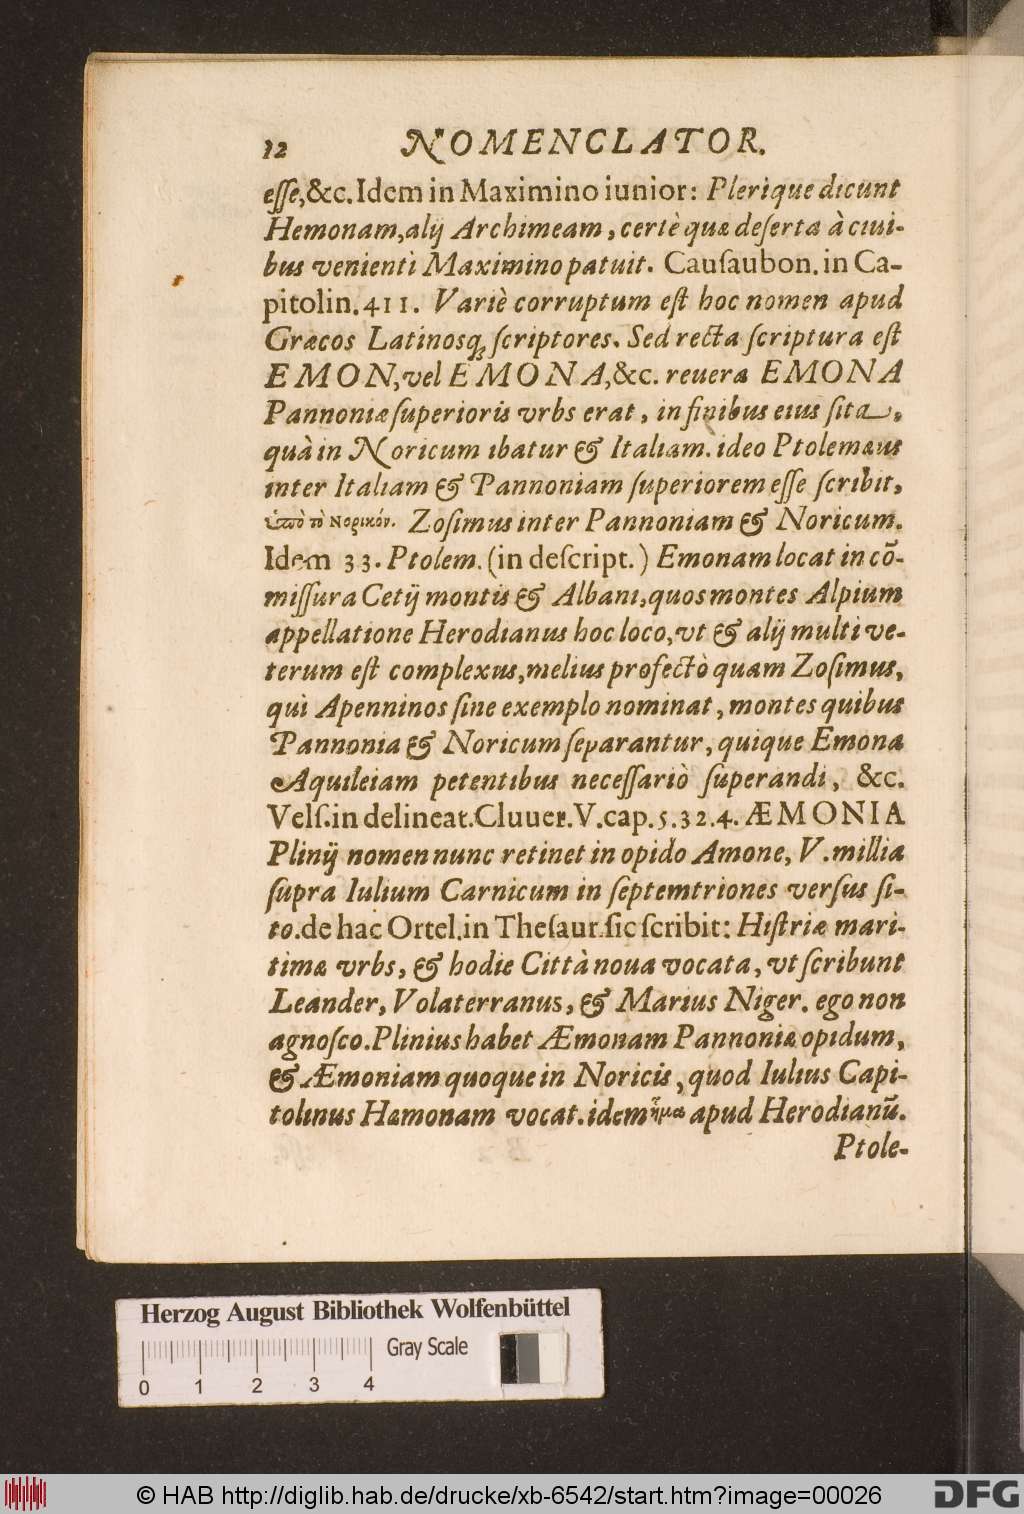 12 NOMENCLATOR.
eſſe,&c. Idem in Maximino iunior: Plerique dicunt
Hemonam, alij Archimeam, certè quæ deſerta à ciui-
bus venienti Maximino patuit. Cauſaubon. in Ca-
pitolin. 411. Variè corruptum eſt hoc nomen apud
Græcos Latinosq; ſcriptores. Sed recta ſcriptura eſt
EMON, vel EMONA, &c. reuera EMONA
Pannoniæ ſuperioris vrbs erat, in finibus eius ſita,
quà in Noricum ibatur & Italiam. ideo Ptolemæus
inter Italiam & Pannoniam ſuperiorem eſſe ſcribit,
ὑπὸ τὸ Νορικόν. Zoſimus inter Pannoniam & Noricum.
Idem 33. Ptolem. (in deſcript.) Emonam locat in cõ-
miſſura Cetij montis & Albani, quos montes Alpium
appellatione Herodianus hoc loco, vt & alij multi ve-
terum eſt complexus, melius profectò quam Zoſimus,
qui Apenninos ſine exemplo nominat, montes quibus
Pannonia & Noricum ſeparantur, quique Emona
Aquileiam petentibus neceſſariò ſuperandi, &c.
Velſ. in delineat. Cluuer. V. cap. 5. 32. 4. ÆMONIA
Plinij nomen nunc retinet in opido Amone, V. millia
ſupra Iulium Carnicum in ſeptemtriones verſus ſi-
to. de hac Ortel. in Theſaur. ſic ſcribit: Hiſtriæ mari-
tima vrbs, & hodie Città noua vocata, vt ſcribunt
Leander, Volaterranus, & Marius Niger. ego non
agnoſco. Plinius habet Æmonam Pannoniæ opidum,
& Æmoniam quoque in Noricis, quod Iulius Capi-
tolinus Hæmonam vocat. idem ἧμα apud Herodianũ.
Ptole-
Herzog August Bibliothek Wolfenbüttel
Gray Scale
0 1 2 3 4
© HAB http://diglib.hab.de/drucke/xb-6542/start.htm?image=00026
DFG